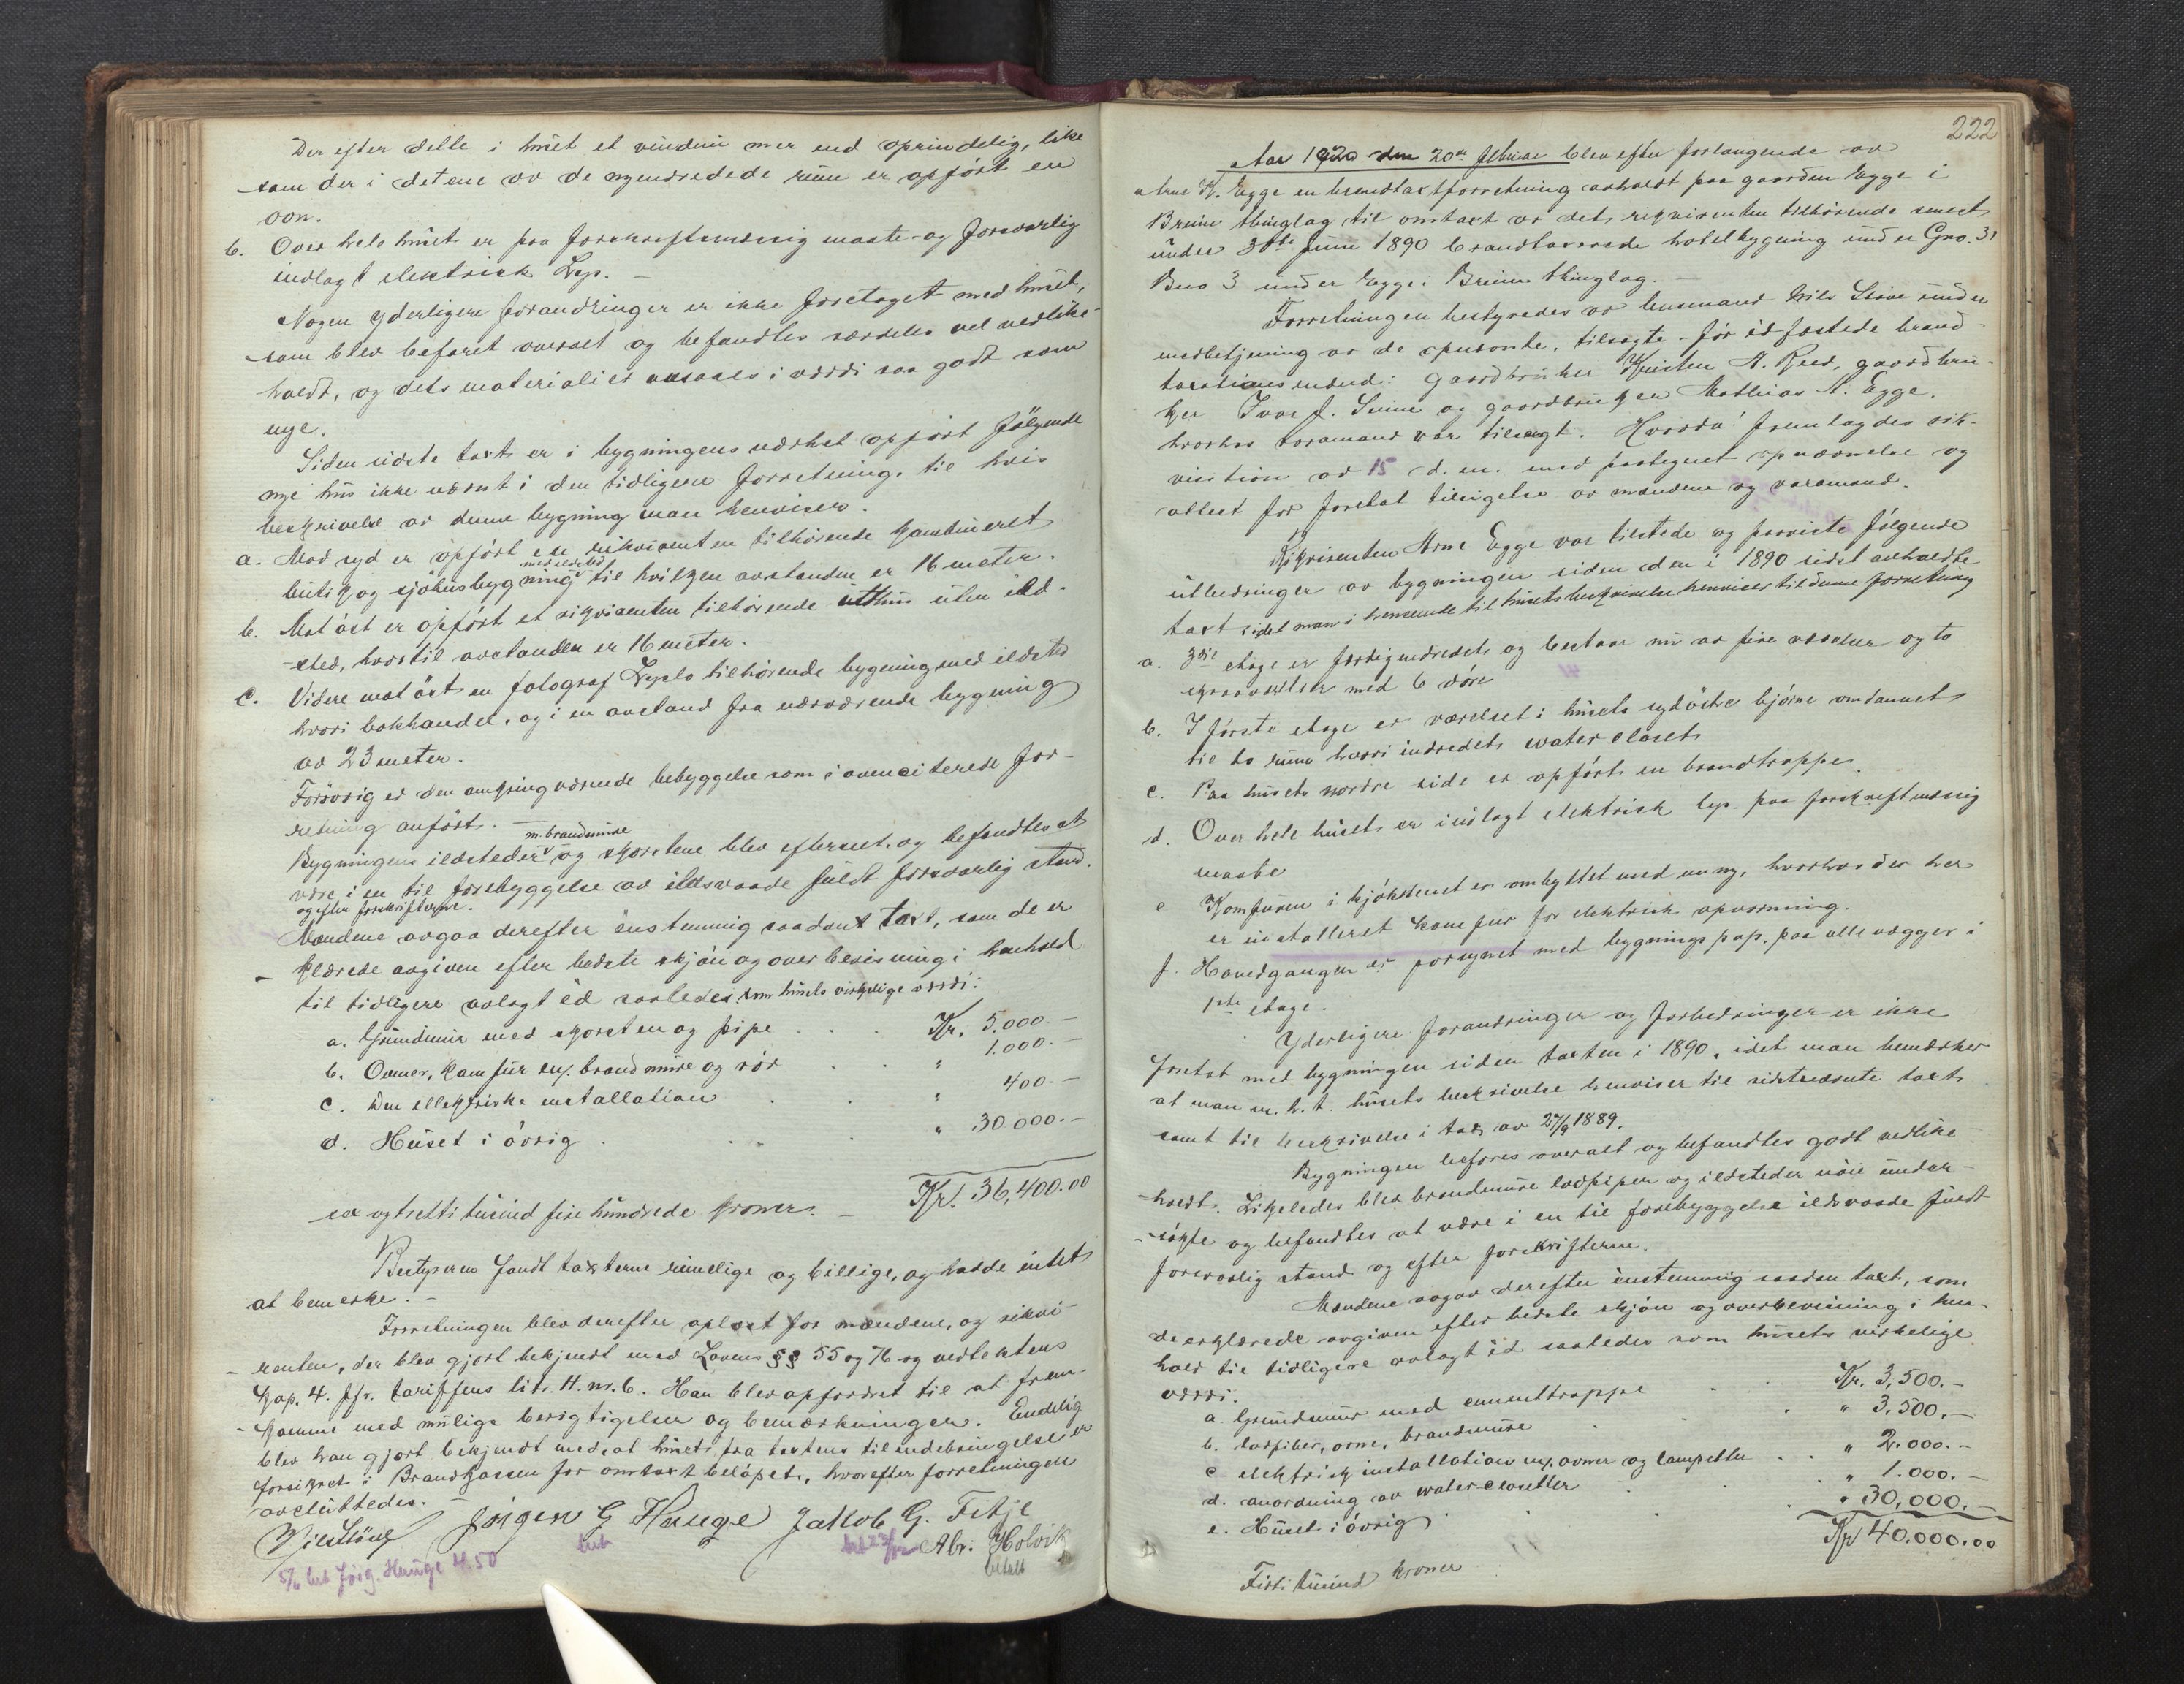 Der efter dette i huset et vindu mer end oprindelig, like
som der i detene av de nyendredede rum er opført en
ovn.
b. Over hele huset er paa forskriftsmæssig maate og forsvarlig
indlagt elektrisk Lys. —
Nogen yderligere forandringer er ikke foretaget med huset,
som blev befaret overalt og befandtes særdeles vel vedlike-
holdt, og dets materialier ansaaes i værdi saa godt som
nye.
Siden sidste taxt er i bygningens nærhet opført følgende
nye hus ikke nævnt i den tidligere forretning, til hvis
beskrivelse av denne bygning man henviser.
a. Mod syd er opført en rikvirenten tilhørende kombineret
butik og sjøhusbygning med ildsted til hvilken avstanden er 16 meter.
b. Mot øst er opført et rikvirenten tilhørende uthus uten ild-
sted, hvortil avstanden er 16 meter.
c. Videre mot øst en fotograf tilhørende bygning med ildsted
hvori bokhandel, og i en avstand fra nærværende bygning
av 23 meter.
Forøvrig er den omkringværende bebyggelse som i ovenciterede for-
retning anført. —
Bygningens ildsteder m. brandmure og skorstene blev efterseet og befandtes at
være i en til forebyggelse av ildsvaade fuldt forsvarlig stand.
og efter forskrifterne.
Mændene avgav derefter enstemmig saadant taxt, som de er-
klærede avgiven efter bedste skjøn og overbevisning i henhold
til tidligere avlagt ed saaledes som husets virkelige værdi:
a. Grundmur med skorsten og pipe . . . Kr. 5.000.—
b. Ovner, kamfur, brandmure og rør . . " 1.000.—
c. Den ellektriske installation . . " 400.—
d. Huset i øvrig . . . " 30.000.—
Kr. 36,400.00
sex og tretti tusind fire hundrede kroner. —
Bestyreren fandt taxterne rimelige og billige, og hadde intet
at bemerke. —
Forretningen blev derefter oplæst for mændene, og rikvi-
renten, der blev gjort bekjendt med Lovens §§ 55 og 76 og vedtektens
Kap. 4. jfr. tariffens litr. H. nr. 6. Han blev opfordret til at frem-
komme med mulige berigtigelser og bemærkninger. Endelig
blev han gjort bekjendt med, at huset fra taxtens tilendebringelse er
forsikret i Brandkassen for omtaxt beløpet, hvorefter forretningen
avsluttedes. —
Jørgen G Hauge Jakob G. Fitje
Abr. Holvik
5/6 bet Jørg. Hauge 4.50
betalt
222
Aar 1920 den 20de februar blev efter forlangende av
Arne K. Egge en brandtaxtforretning avholdt paa gaarden Egge i
Breim thinglag til omtaxt av det, rikvirenten tilhørende senest
under Juni 1890 brandtaxerede hotelbygning under Gno. 31
Bno 3 under Egge i Breim thinglag. —
Forretningen bestyredes av lensmand Nils under
medbetjening av de opnævnte, tilsagte - før edfæstede brand-
taxationsmænd: Gaardbruker Kristen A. Reed, gaardbru-
ker Ivar J. Seime og gaardbruker Mathias A. Egge.
hvorhos varamand var tilsagt. Hvorda fremlagdes rik-
visition av 15 d. m. med paategnet opnævnelse og
attest for foretat tilsigelse av mændene og varamand.
Rikvirenten Arne Egge var tilstede og paaviste følgende
utbedringer av bygningen siden den i 1890 sidst avholdte
taxt idet man i henseende til husets beskrivelse henviser til denne forretning
a. 3die etage er færdigindredet og bestaar nu av fire værelser og to
med 6 døre
b. I første etage er værelset i husets sydøstre hjørne omdannet
til to rum hvori indredet water closet.
c. Paa husets nordre side er opført en brandtrappe.
d. Over hele huset er indlagt elektrisk lys paa forskriftmæssig
maate
e Komfuren i kjøkkenet er ombyttet med en ny, hvorhos der her
er installeret komfur for elektrisk opvarmning.
f. Hovedgangen er forsynet med bygningspap. paa alle vægger i
1ste etage.
Yderligere forandringer og forbedringer er ikke
foretat med bygningen siden taxten i 1890, idet man bemærker
at man m. h. t. husets beskrivelse henviser til sidstnævnte taxt
samt til beskrivelse i tax av 27/9 1889.
Bygningen befores overalt og befandtes godt vedlike-
holdt. Likeledes blev brandmure lodpiper og ildsteder nøie under-
søkte og befandtes at være i en til forebyggelse ildsvaade fuldt
forsvarlig stand og efter forskrifterne.
Mændene avgav derefter enstemmig saadan taxt, som
de erklærede avgiven efter bedste skjøn og overbevisning i hen-
hold til tidligere avlagt ed saaledes som husets virkelige
værdi.
a. Grundmur med cementtrappe . . Kr. 3,500.—
b. lodpiber, ovne, brandmure . . " 3.500.—
c elektrisk installation, ovner og lampetter . . " 2.000.—
d. anordning av water-closetter . . " 1.000.—
e. Huset i øvrig . . " 30,000.—
Kr 40.000.00
Firti tusind kroner